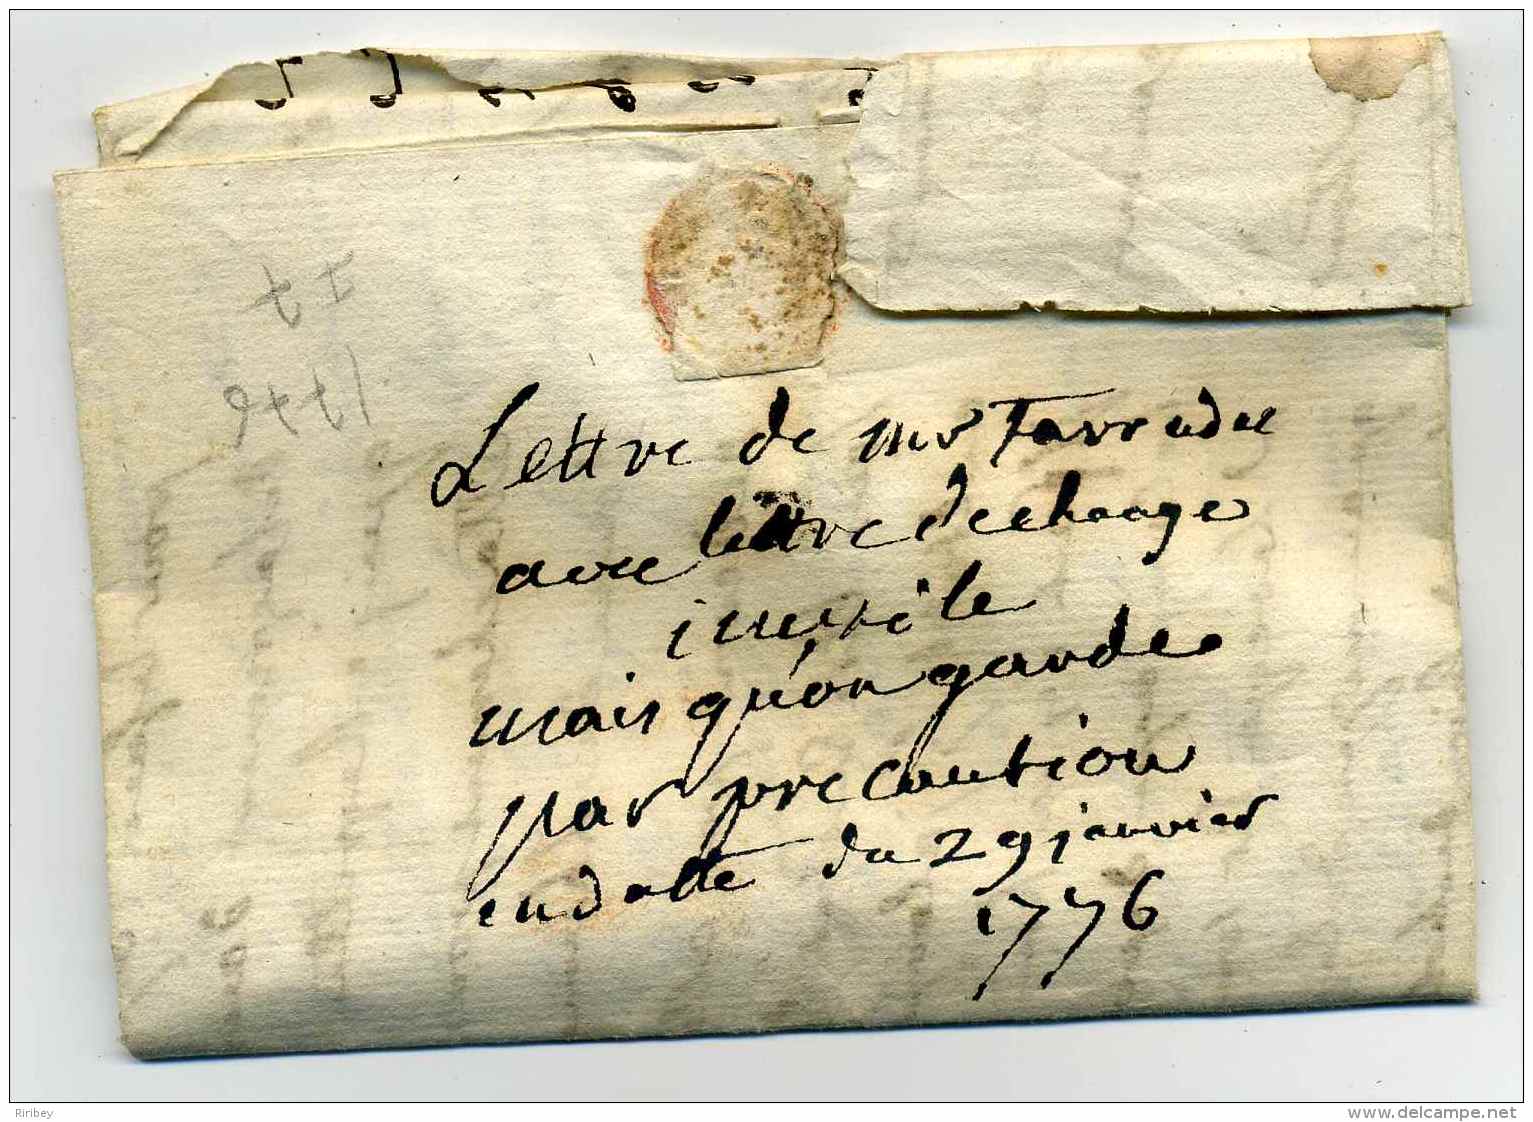 Lettre de mr Farrudel
avec lettre dechange
inutile
mais qu'on garde
par precaution
en datte du 29 janvier
1776
1776
Ribrey
www.delcampe.net